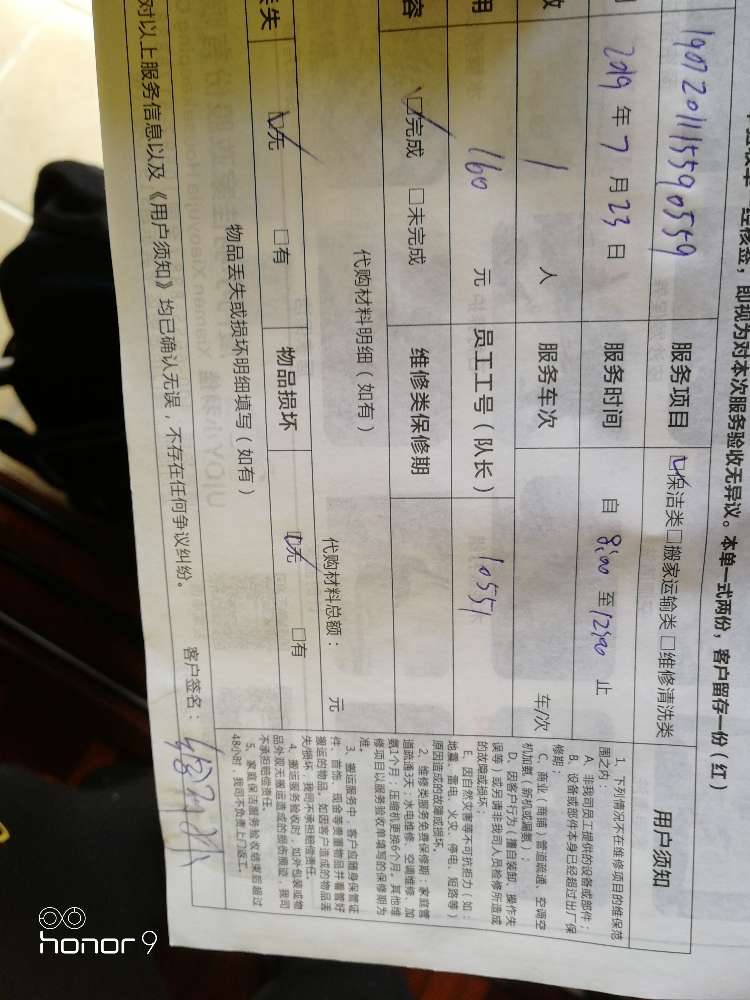 经核签,即视为对本次服务验收无异议。本单一式两份,客户留存一份(红)
1907201115590559
服务项目
保洁类□搬家运输类□维修清洗类
2019年7月23日
服务时间
自8:00至12:00止
1人
服务车次
车/次
用
160元
员工工号(队长)
10551
容
完成 □未完成
维修类保修期
代购材料明细(如有)
代购材料总额: 元
丢失
无 □有
物品损坏
无 □有
物品丢失或损坏明细填写(如有)
对以上服务信息以及《用户须知》均已确认无误,不存在任何争议纠纷。
客户签名:
用户须知
1、下列情况不在维修项目的维保范
围之内:
A、非我司员工提供的设备或部件;
B、设备或部件本身已经超过出厂保
修期;
C、商业(商铺)管道疏通,空调空
机加氨,新机或漏氨);
D、因客户行为(擅自装卸、操作失
误等)或另请非我司人员检修所造成
的故障或损坏;
E、因自然灾害等不可抗拒力(如:
地震、雷电、火灾、停电、短路等)
原因造成的故障或损坏。
2、维修类服务免费保修期:家庭管
道疏通3天;水电维修、空调维修、加
氨1个月;压缩机更换6个月,其他维
修项目以服务验收单填写的保修期为
准。
3、搬运服务中,客户应随身保管证
件、首饰、现金等贵重物品并看管好
搬运的物品。如因客户造成的物品丢
失/损坏,我司不承担赔偿责任。
4、搬运服务验收时,如外包装或物
品外观无搬运造成的损伤痕迹,我司
不承担赔偿责任。
5、家庭保洁服务验收结束后超过
48小时,我司不负责上门返工。
honor 9